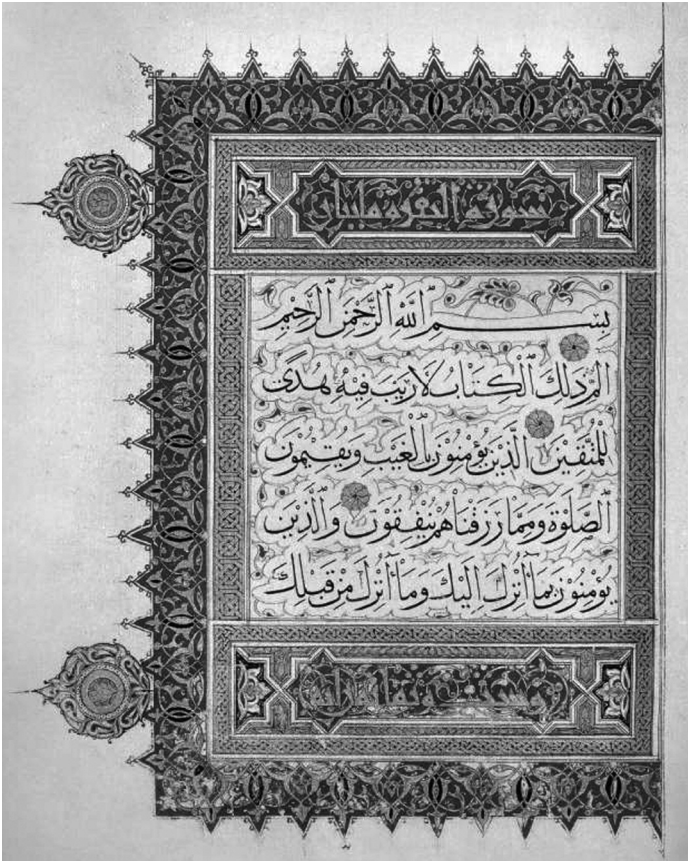 سورة البقرة مايتان
بِسْمِ ٱللَّهِ ٱلرَّحْمَنِ ٱلرَّحِيْمِ
الٓمّ ذَلِكَ ٱلْكِتَابُ لَا رَيْبَ فِيْهِ هُدًى
لِلْمُتَّقِيْنَ ٱلَّذِيْنَ يُؤْمِنُوْنَ بِٱلْغَيْبِ وَيُقِيْمُوْنَ
ٱلصَّلَوٰةَ وَمِمَّا رَزَقْنَاهُمْ يُنْفِقُوْنَ وَٱلَّذِيْنَ
يُؤْمِنُوْنَ بِمَآ أُنْزِلَ اِلَيْكَ وَمَآ أُنْزِلَ مِنْ قَبْلِكَ